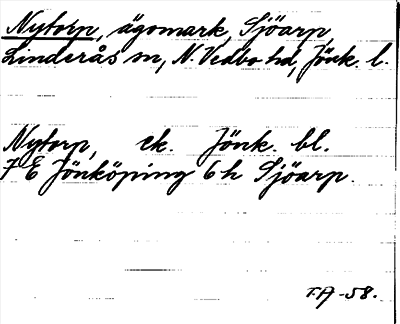 Nytorp, ägomark, Sjöarp,
Linderås sn, N. Vedbo hd, Jönk. l.
Nytorp, ek. Jönk. bl.
7 E Jönköping 6 h Sjöarp.
T.A -58.